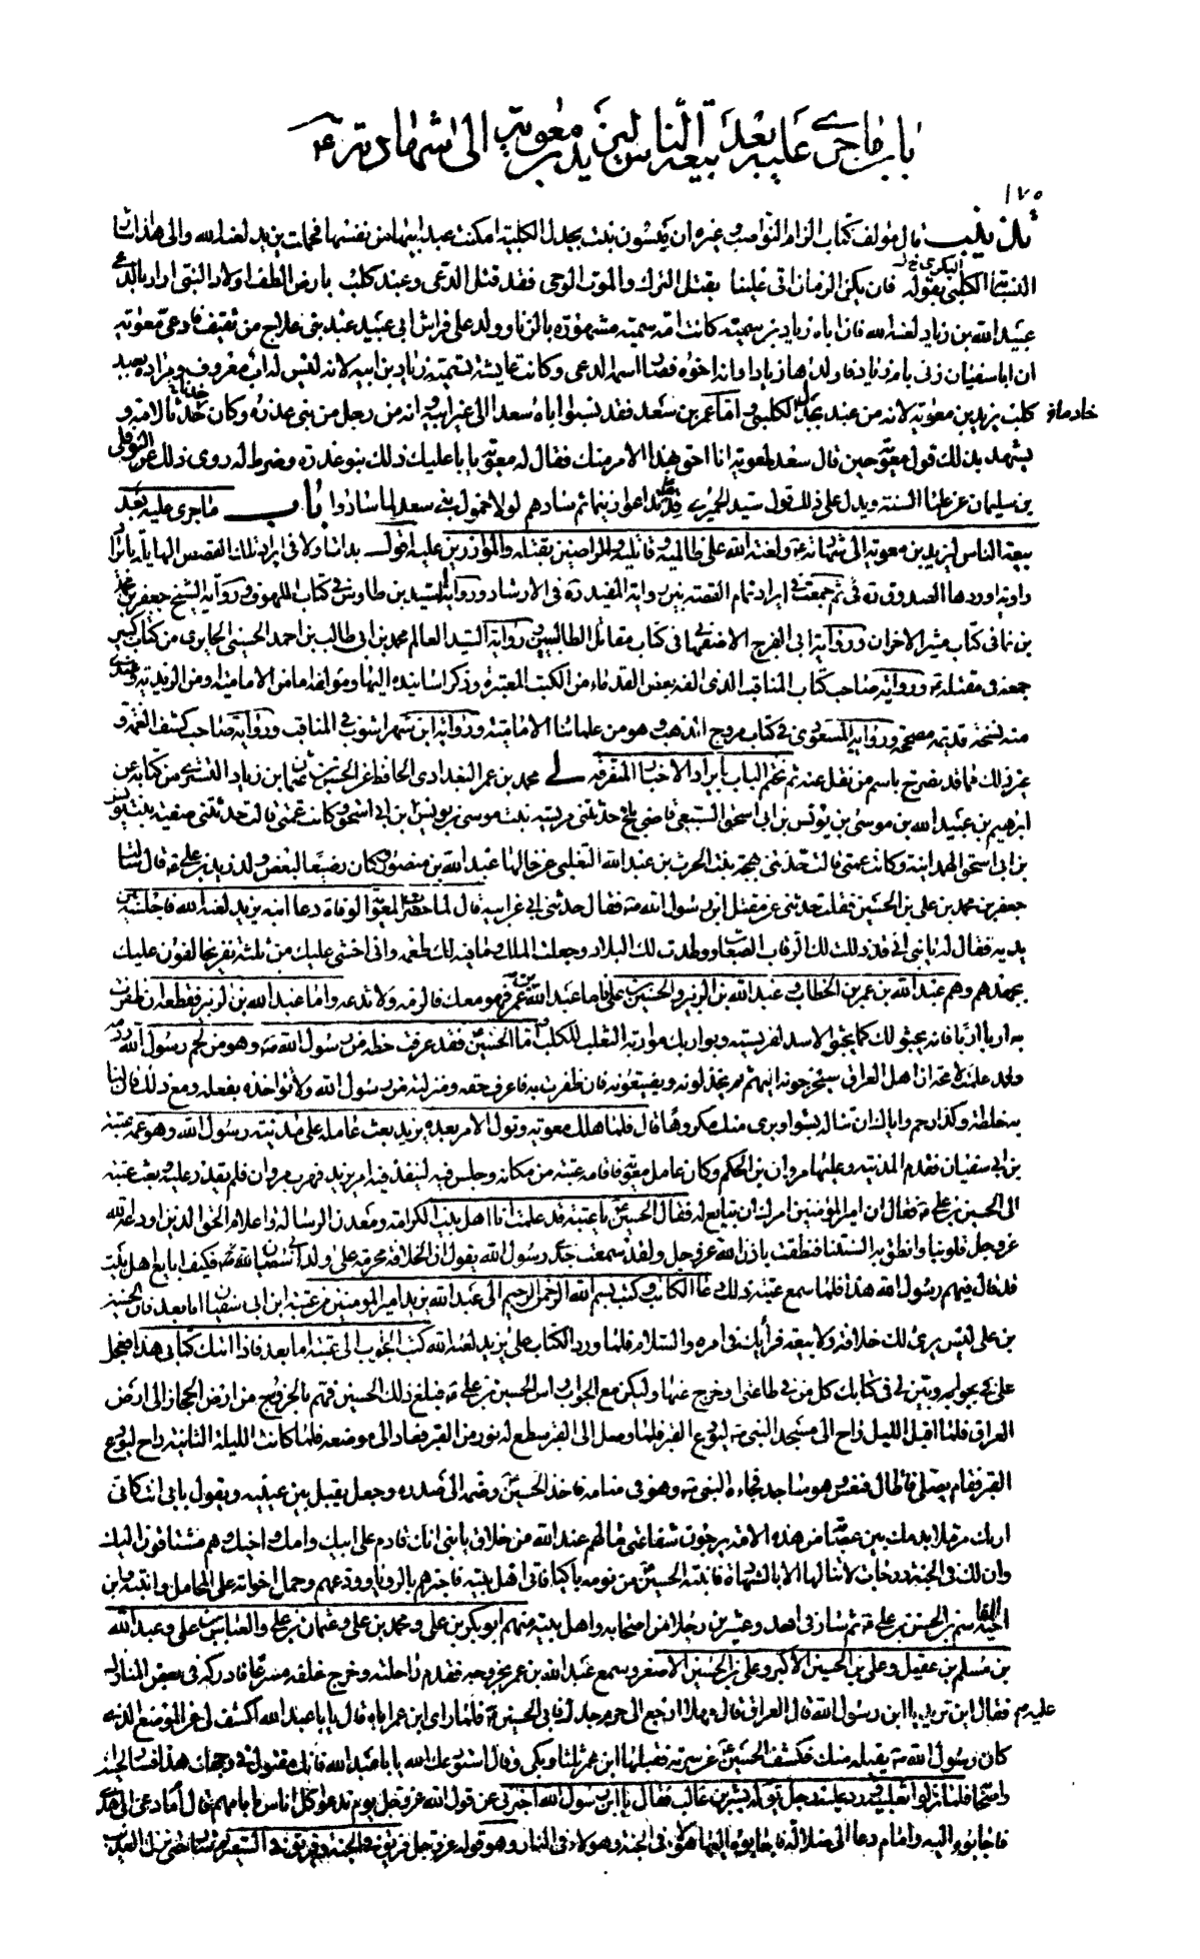 باب ماجرى عليه بعد بيعة الناس ليزيد بن معوية الى شهادته ع
١٧٥
تذنيب قال مؤلف كتاب الزام النواصب وغيره ان ميسون بنت بجدل الكلبية امكنت عبد ابيها من نفسها فحملت بيزيد لعنه الله والى هذا اشار
البكرى خ ل
النسابة الكلبى بقوله فان يكن الزمان اتى علينا بقتل الترك والموت الوحى فقد قتل الدعى وعبد كلب بارض الطف اولاد النبى اراد بالدعى
عبيد الله بن زياد لعنه الله فان اباه زياد بن سمية كانت امه سمية مشهورة بالزنا وولد على فراش ابى عبيد عبد بنى علاج من ثقيف فادعى معوية
ان ابا سفيان زنى بام زياد فاولدها زيادا وانه اخوه فصار اسمه الدعى وكانت عايشة تسميه زياد بن ابيه لانه ليس له اب معروف ومراده بعبد
كلب يزيد بن معوية لانه من عبد بجدل الكلبى واما عمر بن سعد فقد نسبوا اباه سعدا الى غير ابيه وانه من رجل من بنى عذرة وكان خدنا لامه و
خادما خ
يشهد بذلك قول معوية حين قال سعد لمعوية انا احق بهذا الامر منك فقال له معوية يابى عليك ذلك بنو عذرة وضرط له روى ذلك النوفلى
بن سليمان من علماء السنة ويدل على ذلك قول سيد الحميرى قدما تداعوا زنيما ثم سادهم لولا خمول بنى سعد لما سادوا باب ماجرى عليه بعد
بيعة الناس ليزيد بن معوية الى شهادته ولعنة الله على ظالميه وقاتليه والراضين بقتله والموازرين عليه اقول بدأنا اولا فى ايراد تلك القصص الهايلة بايراد
رواية اوردها الصدوق ره ثم جمعنا فى ايراد تمام القصة بين رواية المفيد ره فى الارشاد ورواية السيد بن طاوس فى كتاب الملهوف ورواية الشيخ جعفر بن محمد
بن نما فى كتاب مثير الاحزان ورواية ابى الفرج الاصفهانى فى كتاب مقاتل الطالبيين ورواية السيد العالم محمد بن ابى طالب بن احمد الحسينى الحايرى من كتاب كبير
جمعه فى مقتله ع ورواية صاحب كتاب المناقب الذى الفه بعض القدماء من الكتب المعتبرة وذكر اسانيده اليها ومؤلفه اما من الامامية او من الزيدية وعندى
منه نسخة قديمة مصححة ورواية المسعودى فى كتاب مروج الذهب وهو من علمائنا الامامية ورواية ابن شهراشوب فى المناقب ورواية صاحب كشف الغمة و
غير ذلك مما قد نصرح باسم من ننقل عنه ثم نختم الباب بايراد الاخبار المتفرقة لى محمد بن عمر البغدادى الحافظ عن الحسن بن عثمان بن زياد التسترى من كتابه عن
ابرهيم بن عبيد الله بن موسى بن يونس بن ابى اسحق السبيعى قاضى بلخ حدثتنى مريسة بنت موسى بن يونس بن ابى اسحق وكانت عمتى قالت حدثتنى صفية بنت يونس
بن ابى اسحق الهمدانية وكانت عمتى قالت حدثتنى بهجة بنت الحرث بن عبد الله التغلبى عن خالها عبد الله بن منصور وكان رضيعا لبعض ولد زيد بن على ع قال سألت
جعفر بن محمد بن على بن الحسين فقلت حدثنى عن مقتل ابن رسول الله ص فقال حدثنى ابى عن ابيه قال لما حضرت معوية الوفاة دعا ابنه يزيد لعنه الله فاجلسه بين
يديه فقال له يا بنى انى قد ذللت لك الرقاب الصعاب ووطدت لك البلاد وجعلت الملك وما فيه لك طعمة وانى اخشى عليك من ثلثة نفر يخالفون عليك
بجهدهم وهم عبد الله بن عمر بن الخطاب وعبد الله بن الزبير والحسين بن على فاما عبد الله بن عمر فهو معك فالزمه ولا تدعه واما عبد الله بن الزبير فقطعه ان ظفرت
به اربا اربا فانه يجثو لك كما يجثو الاسد لفريسته ويواربك مواربة الثعلب للكلب واما الحسين ع فقد عرفت حظه من رسول الله ص وهو من لحم رسول الله ودمه
وقد علمت لا محة ان اهل العراق سيخرجونه اليهم ثم يخذلونه ويضيعونه فان ظفرت به فاعرف حقه ومنزلته من رسول الله ولا تؤاخذه بفعله ومع ذلك فان لنا
به خلطة ورحما واياك ان تناله بسوء او يرى منك مكروها قال فلما هلك معوية وتولى الامر بعده يزيد بعث عامله على مدينة رسول الله وهو عمه عتبة
بن ابى سفيان فقدم المدينة وعليها مروان بن الحكم وكان عامل معوية فاقامه عتبة من مكانه وجلس فيه لينفذ فيه امر يزيد فهرب مروان فلم يقدر عليه وبعث عتبة
الى الحسين بن على ع فقال ان امير المؤمنين امرك ان تبايع له فقال الحسين ع يا عتبة قد علمت انا اهل بيت الكرامة ومعدن الرسالة واعلام الحق الذين اودعه الله
عز وجل قلوبنا وانطق به السنتنا فنطقت باذن الله عز وجل ولقد سمعت جدى رسول الله يقول ان الخلافة محرمة على ولد ابى سفيان وكيف ابايع اهل بيت
قد قال فيهم رسول الله هذا فلما سمع عتبة ذلك دعا الكاتب وكتب بسم الله الرحمن الرحيم الى عبد الله يزيد امير المؤمنين من عتبة ابن ابى سفيان اما بعد فان الحسين
بن على ليس يرى لك خلافة ولا بيعة فرأيك فى امره والسلام فلما ورد الكتاب على يزيد لعنه الله كتب الجواب الى عتبة اما بعد فاذا اتاك كتابى هذا فعجل
على بجوابه وبين لى فى كتابك كل من فى طاعتى او خرج عنها وليكن مع الجواب راس الحسين بن على ع فبلغ ذلك الحسين فهم بالخروج من ارض الحجاز الى ارض
العراق فلما اقبل الليل راح الى مسجد النبى ص ليودع القبر فلما وصل الى القبر سطع له نور من القبر فعاد الى موضعه فلما كانت الليلة الثانية راح ليودع
القبر فقام يصلى فاطال فنعس وهو ساجد فجاءه النبى ص وهو فى منامه فاخذ الحسين ع وضمه الى صدره وجعل يقبل بين عينيه ويقول بابى انت كانى
اراك مرملا بدمك بين عصابة من هذه الامة يرجون شفاعتى ما لهم عند الله من خلاق يا بنى انك قادم على ابيك وامك واخيك وهم مشتاقون اليك
وان لك فى الجنة درجات لا تنالها الا بالشهادة فانتبه الحسين ع من نومه باكيا فاتى اهل بيته فاخبرهم بالرؤيا وودعهم وحمل اخواته على المحامل وابنته وابن
اخيه القاسم بن الحسن بن على ع ثم سار فى احد وعشرين رجلا من اصحابه واهل بيته منهم ابو بكر بن على ومحمد بن على وعثمان بن على والعباس بن على وعبد الله
بن مسلم بن عقيل وعلى بن الحسين الاكبر وعلى بن الحسين الاصغر وسمع عبد الله بن عمر بخروجه فقدم راحلته وخرج خلفه مسرعا فادركه فى بعض المنازل
فقال اين تريد يا ابن رسول الله قال العراق قال مهلا ارجع الى حرم جدك فابى الحسين ع فلما راى ابن عمر اباه قال يا با عبد الله اكشف لى عن الموضع الذى
عليه م
كان رسول الله ص يقبله منك فكشف الحسين ع عن سرته فقبلها ابن عمر ثلثا وبكى وقال استودعك الله يا با عبد الله فانك مقتول فى وجهك هذا فسار الحسين
واصحابه فلما نزلوا ثعلبية ورد عليه رجل يقال له بشر بن غالب فقال يا ابن رسول الله اخبرنى عن قول الله عز وجل يوم ندعو كل اناس بامامهم قال امام دعى الى هدى
فاجابوه اليه وامام دعا الى ضلالة فاجابوه اليها هؤلاء فى الجنة وهولاء فى النار وهو قوله عز وجل فريق فى الجنة وفريق فى السعير ثم سار حتى نزل العذيب